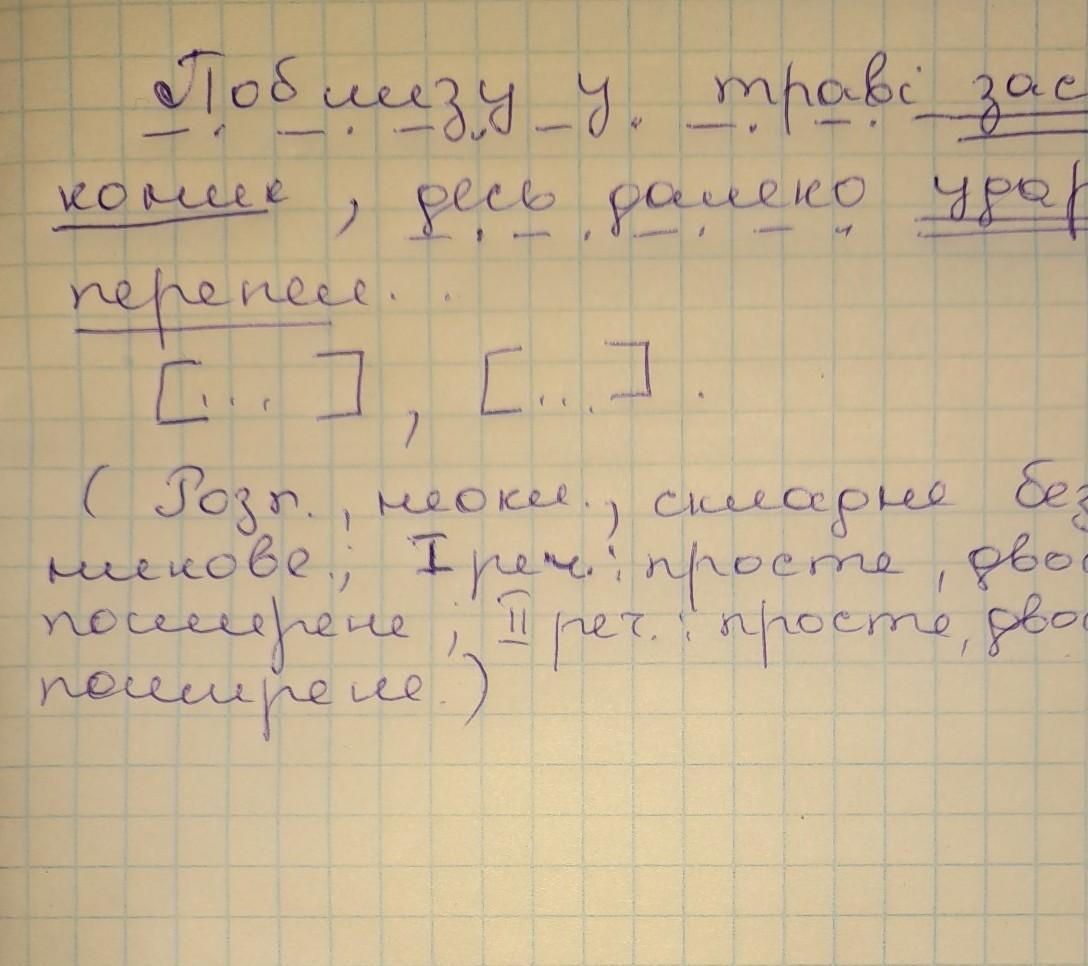 Поблизу у траві зас
коник, десь далеко удар
перепел..
[...], [...].
(Розп., неокл., складне без
никове.; I реч.: просте, дво
поширене; II реч.: просте, дво
поширене.)